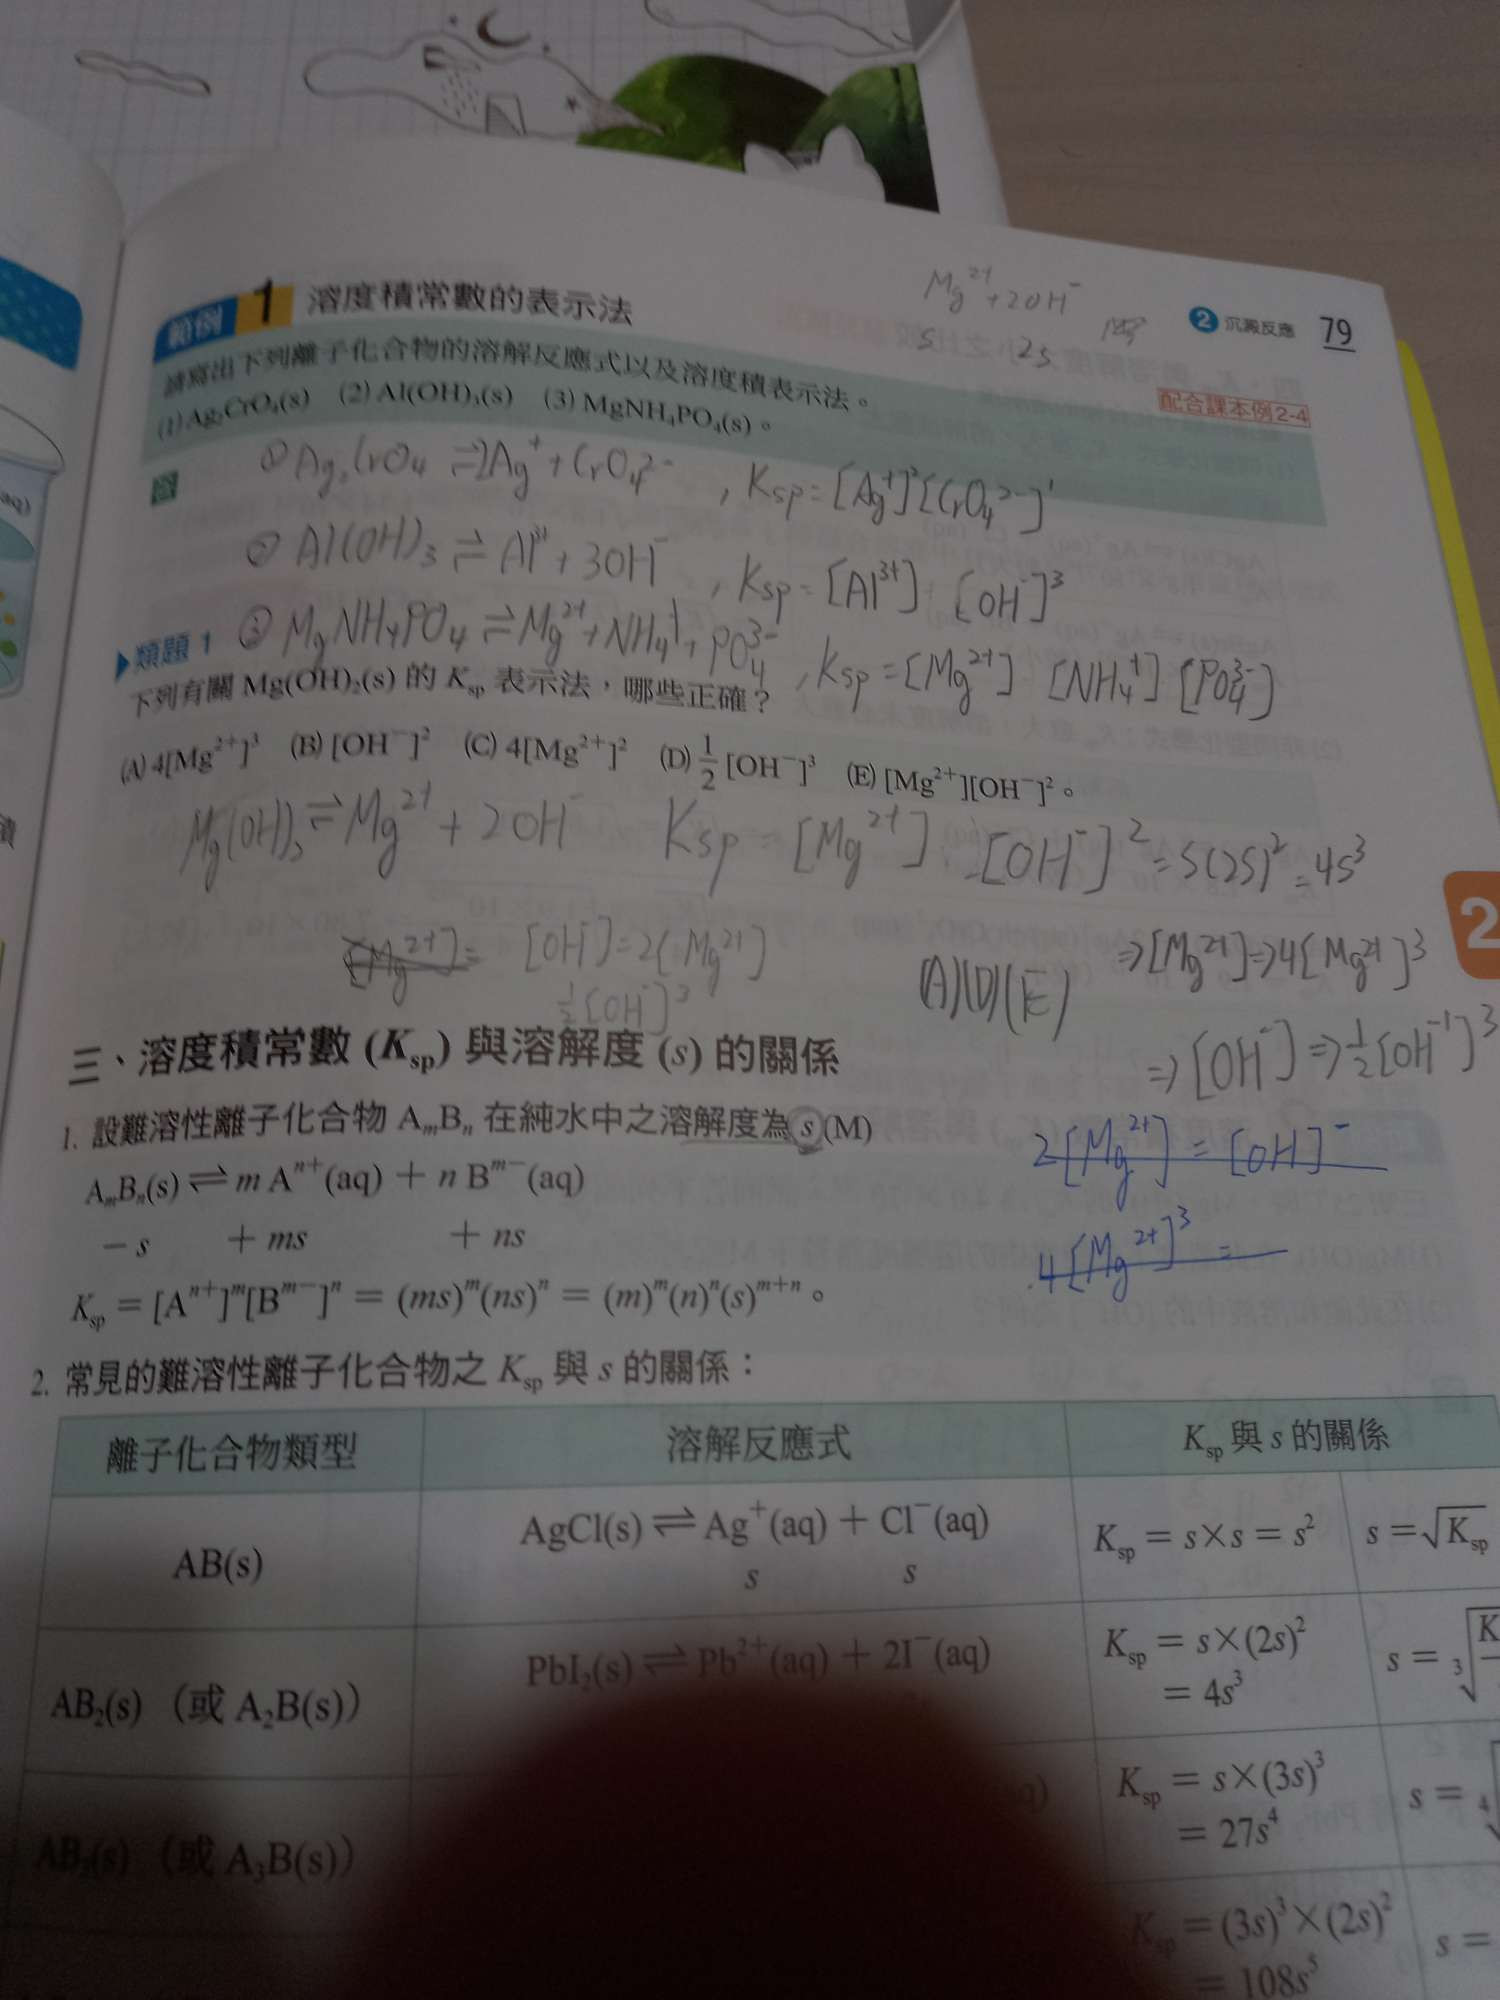 Mg²⁺ + 2OH⁻
s 2s
2 沉澱反應 79
範例 1 溶度積常數的表示法
請寫出下列離子化合物的溶解反應式以及溶度積表示法。
配合課本例2-4
(1) Ag₂CrO₄(s) (2) Al(OH)₃(s) (3) MgNH₄PO₄(s)。
答
① Ag₂CrO₄ ⇌ 2Ag⁺ + CrO₄²⁻ , Ksp = [Ag⁺]²[CrO₄²⁻]¹
② Al(OH)₃ ⇌ Al³⁺ + 3OH⁻ , Ksp = [Al³⁺]·[OH⁻]³
③ MgNH₄PO₄ ⇌ Mg²⁺ + NH₄⁺ + PO₄³⁻ , Ksp = [Mg²⁺]·[NH₄⁺]·[PO₄³⁻]
▶類題 1
下列有關 Mg(OH)₂(s) 的 Ksp 表示法，哪些正確？
(A) 4[Mg²⁺]³ (B) [OH⁻]² (C) 4[Mg²⁺]² (D) 1/2 [OH⁻]³ (E) [Mg²⁺][OH⁻]²。
Mg(OH)₂ ⇌ Mg²⁺ + 2OH⁻ Ksp = [Mg²⁺]·[OH⁻]² = S(2S)² = 4S³
[Mg²⁺] = [OH⁻] = 2[Mg²⁺]
1/2[OH⁻]³
(A)(D)(E)
⇒ [Mg²⁺] ⇒ 4[Mg²⁺]³
⇒ [OH⁻] ⇒ 1/2[OH⁻¹]³
2[Mg²⁺] = [OH]⁻
4[Mg²⁺]³ =
2
三、溶度積常數 (Ksp) 與溶解度 (s) 的關係
1. 設難溶性離子化合物 AₘBₙ 在純水中之溶解度為 s (M)
AₘBₙ(s) ⇌ m Aⁿ⁺(aq) + n Bᵐ⁻(aq)
−s +ms +ns
Ksp = [Aⁿ⁺]ᵐ[Bᵐ⁻]ⁿ = (ms)ᵐ(ns)ⁿ = (m)ᵐ(n)ⁿ(s)ᵐ⁺ⁿ。
2. 常見的難溶性離子化合物之 Ksp 與 s 的關係：
離子化合物類型 溶解反應式 Ksp 與 s 的關係
AB(s) AgCl(s) ⇌ Ag⁺(aq) + Cl⁻(aq) Ksp = s×s = s² s = √Ksp
s s
AB₂(s)（或 A₂B(s)） PbI₂(s) ⇌ Pb²⁺(aq) + 2I⁻(aq) Ksp = s×(2s)² s = ³√K
= 4s³
AB₃(s)（或 A₃B(s)） Ksp = s×(3s)³ s = ⁴√
= 27s⁴
Ksp = (3s)³×(2s)² s =
= 108s⁵